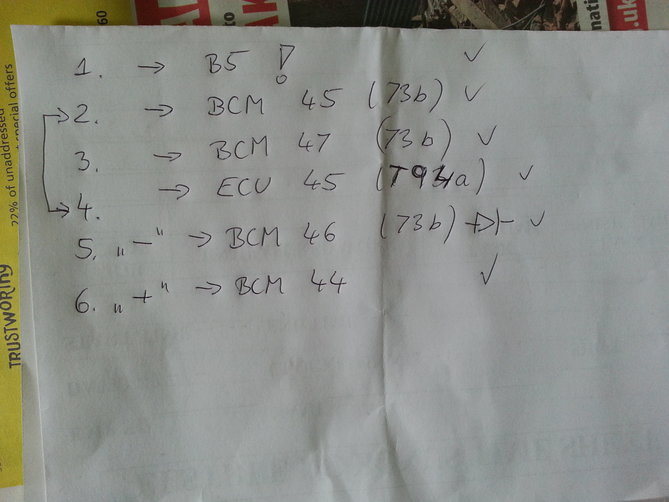 60
22% of unaddressed
special offers
TRUSTWORTHY
.uk
1. → B5 ! ✓
2. → BCM 45 (73b) ✓
3. → BCM 47 (73b) ✓
4. → ECU 45 (T94a) ✓
5. „ − " → BCM 46 (73b) ✓
6. „ + " → BCM 44 ✓